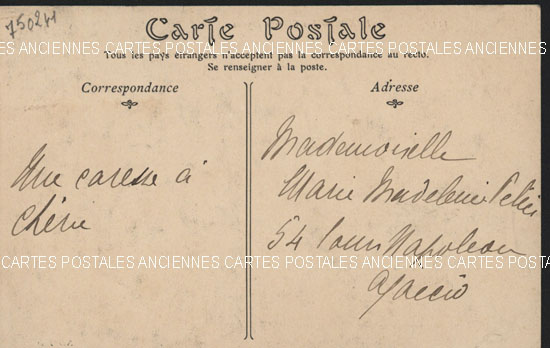 750241
Carte Postale
CARTES POSTALES ANCIENNES CARTES POSTALES ANCIENNES CARTES POSTALES ANCIENNES CARTES POSTALES ANCIENNES
Tous les pays étrangers n'acceptent pas la correspondance au recto.
Se renseigner à la poste.
Correspondance
Une caresse à
Chérie
Adresse
Mademoiselle
Marie Madeleine
54 Cours Napoleon
Ajaccio
CARTES POSTALES ANCIENNES CARTES POSTALES ANCIENNES CARTES POSTALES ANCIENNES CARTES POSTALES ANCIENNES